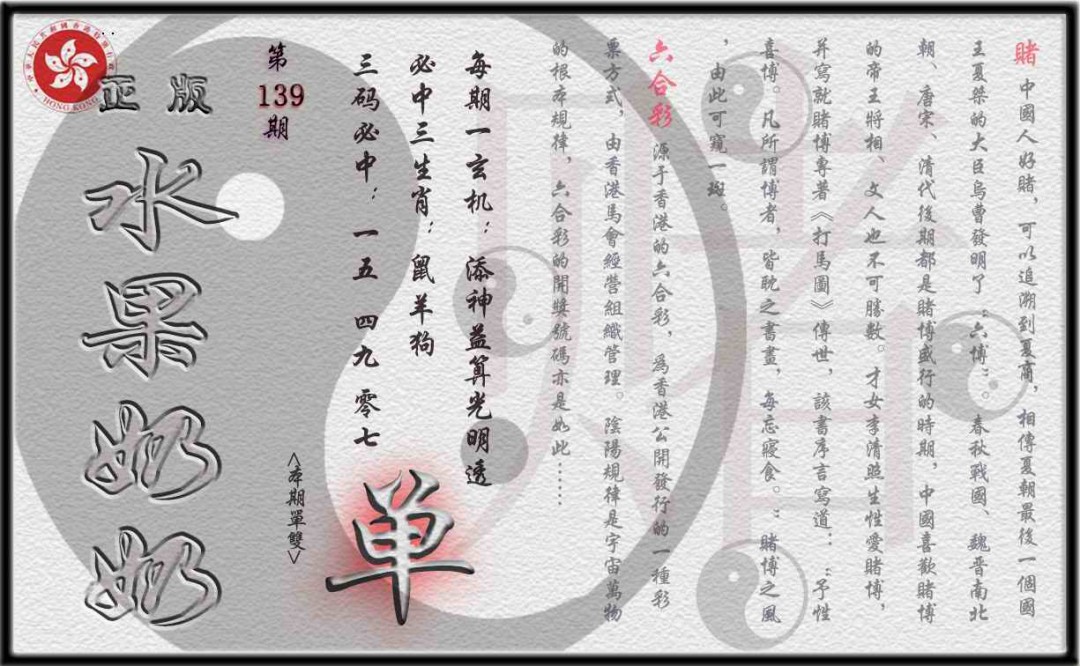 賭 中國人好賭，可以追溯到夏商，相傳夏朝最後一個國
王夏桀的大臣烏曹發明了“六博”。春秋戰國、魏晉南北
朝、唐宋、清代後期都是賭博盛行的時期，中國喜歡賭博
的帝王將相、文人也不可勝數。才女李清照生性愛賭博，
并寫就賭博專著《打馬圖》傳世，該書序言寫道：“予性
喜博。凡所謂博者，皆耽之書畫，每忘寢食。”賭博之風
，由此可窺一斑。
六合彩 源于香港的六合彩，爲香港公開發行的一種彩
票方式，由香港馬會經營組織管理。陰陽規律是宇宙萬物
的根本規律，六合彩的開獎號碼亦是如此……
每期一玄机：添神益算光明透
必中三生肖：鼠羊狗
三码必中：一五 四九 零七
单
<本期單雙>
第
139
期
正版
水果奶奶
HONG KONG
賭